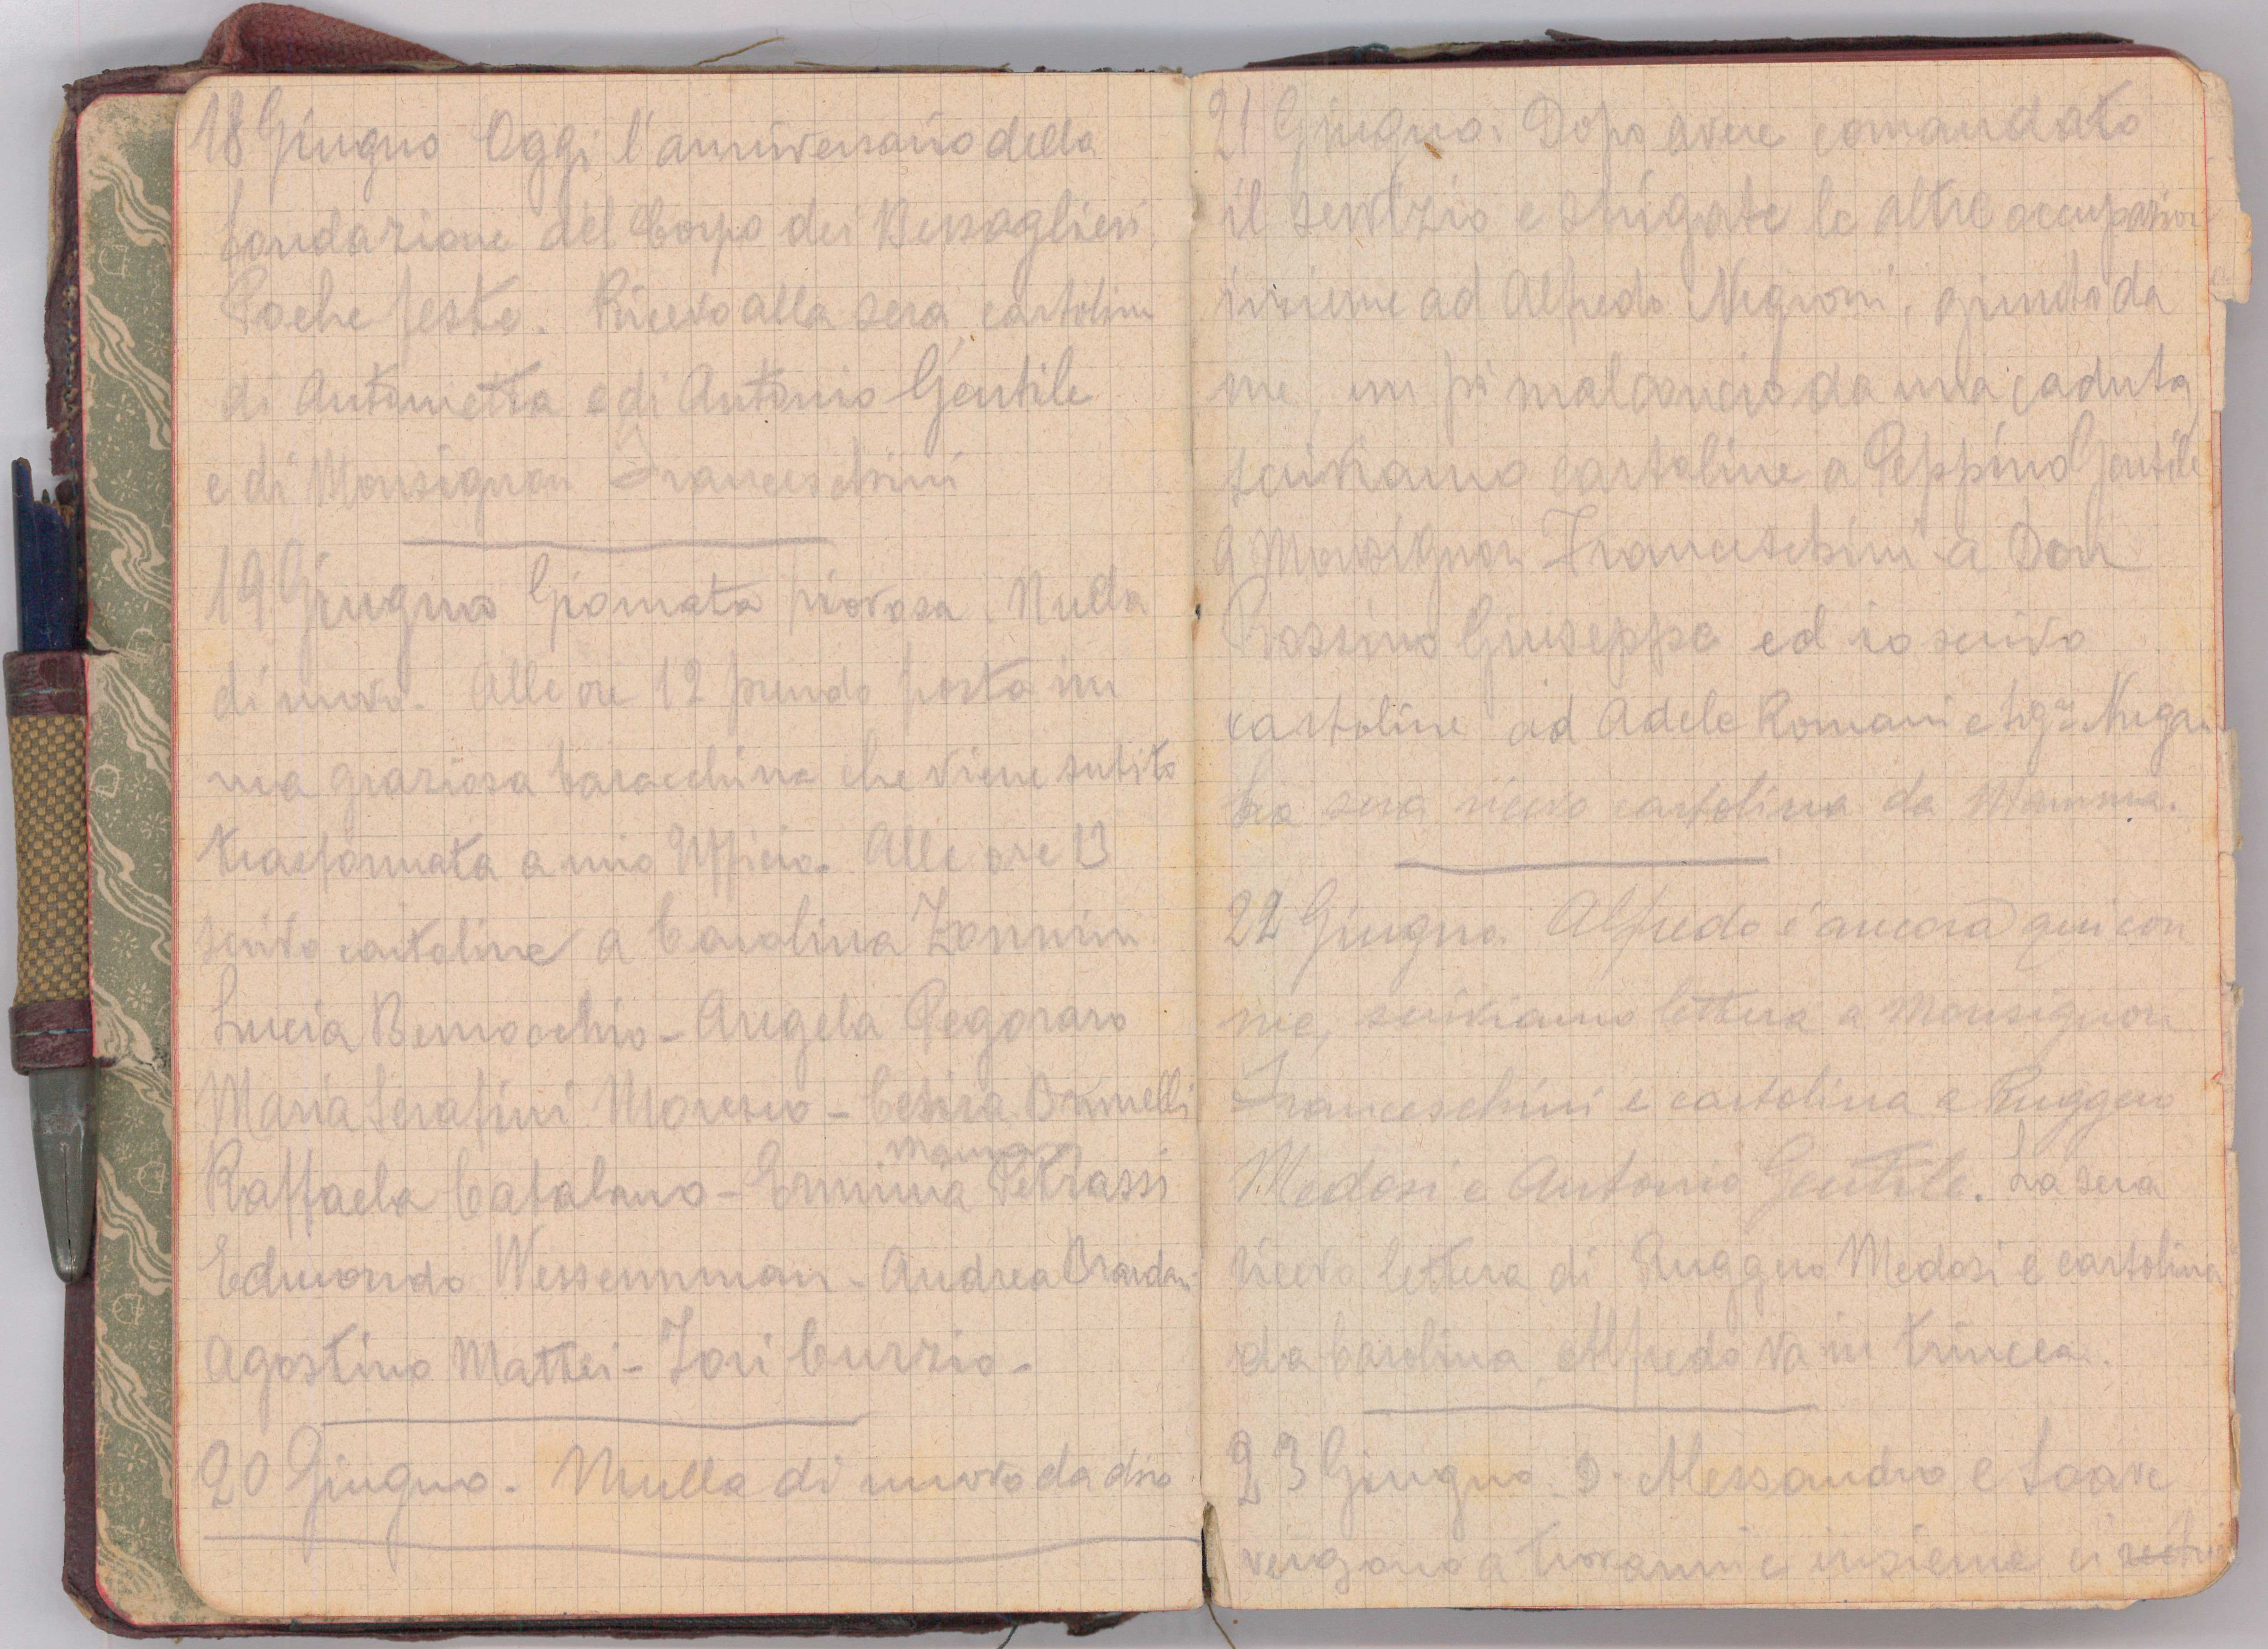 18 Giugno Oggi l'anniversario della
fondazione del Corpo dei Bersaglieri.
Poche feste. Ricevo alla sera cartoline
di Antonietta e di Antonio Gentile
e di Monsignor Franceschini
19 Giugno Giornata piovosa. Nulla
di nuovo. Alle ore 12 prendo posto in
una graziosa baracchina che viene subito
trasformata a mio Ufficio. Alle ore 13
scrivo cartoline a Carolina Zannini
Lucia Bernocchio - Angela Pegoraro
Maria Serafini Moresco - Cesira Brunelli
Mauro
Raffaela Catalano - Erminia Petrassi
Edmondo Wessemman - Andrea
Agostino Mattei - Tori Curzio -
20 Giugno. Nulla di nuovo da dire
21 Giugno. Dopo avere comandato
il servizio e sbrigate le altre occupazioni
insieme ad Alfredo Negroni, giunto da
me, un pò malconcio da una caduta
scriviamo cartoline a Peppino Gentile
a Monsignor Franceschini a Don
Giuseppe ed io scrivo
cartoline ad Adele Romani e
La sera ricevo cartolina da Mamma.
22 Giugno Alfredo è ancora qui con
me, scriviamo lettera a Monsignor
Franceschini e cartolina a Ruggero
Medosi e Antonio Gentile. La sera
ricevo lettera di Ruggero Medosi e cartolina
da Carolina. Alfredo va in trincea.
23 Giugno. D. Alessandro e Soave
vengono a trovarmi e insieme ci